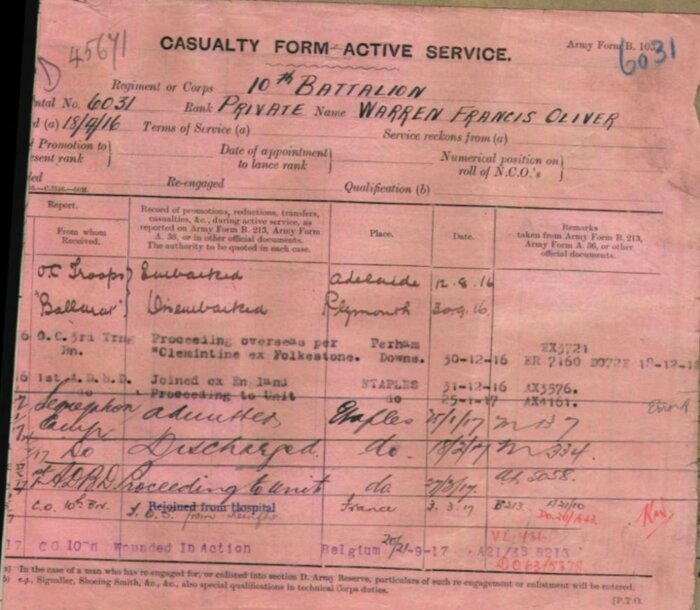 45671
CASUALTY FORM—ACTIVE SERVICE.
Army Form B. 103
6031
D
Regiment or Corps 10th BATTALION
ntal No. 6031 Rank PRIVATE Name WARREN FRANCIS OLIVER
d (a) 18/4/16 Terms of Service (a) Service reckons from (a)
Promotion to Date of appointment Numerical position on
sent rank to lance rank roll of N.C.O.'s
ed Re-engaged Qualification (b)
Report.
From whom Received.
Record of promotions, reductions, transfers, casualties, &c., during active service, as reported on Army Form B. 213, Army Form A. 36, or in other official documents. The authority to be quoted in each case.
Place.
Date.
Remarks
taken from Army Form B. 213, Army Form A. 36, or other official documents.
O.C Troops Embarked Adelaide 12.8.16
"Ballarat" Disembarked Plymouth 30.9.16.
O.C. 3rd Trng Proceeding overseas per Perham EX3721
Bn. "Clemintine ex Folkestone. Downs. 30-12-16 ER 7160 DO72E 18-12-16
1st A.D.B.D. Joined ex England ETAPLES 31-12-16 AX3576.
do Proceeding to Unit do 25-1-17 AX4161. Error
Camp Admitted Etaples 25/1/17
Do Discharged. do. 18/2/17 334.
A.D.B.D. Proceeding to Unit do 27/2/17.
C.O. 10th Bn. Rejoined from Hospital France 3.3.17 B213
17 CO 10th Wounded In Action Belgium 20/21-9-17 A21/33 B213
a) In the case of a man who has re-engaged for, or enlisted into section D. Army Reserve, particulars of such re-engagement or enlistment will be entered.
b) e.g., Signaller, Shoeing Smith, &c., &c., also special qualifications in technical Corps duties.
[P.T.O.